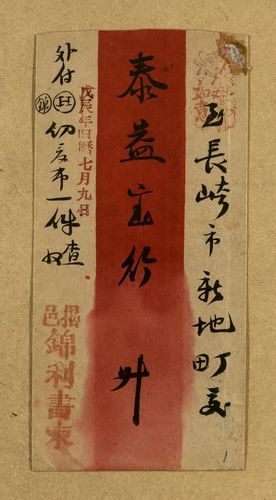 至長崎市新地町交
泰益宝行 升
戊辰年旧曆七月九日
外付
布一件查收
揭邑
錦利書柬
如意